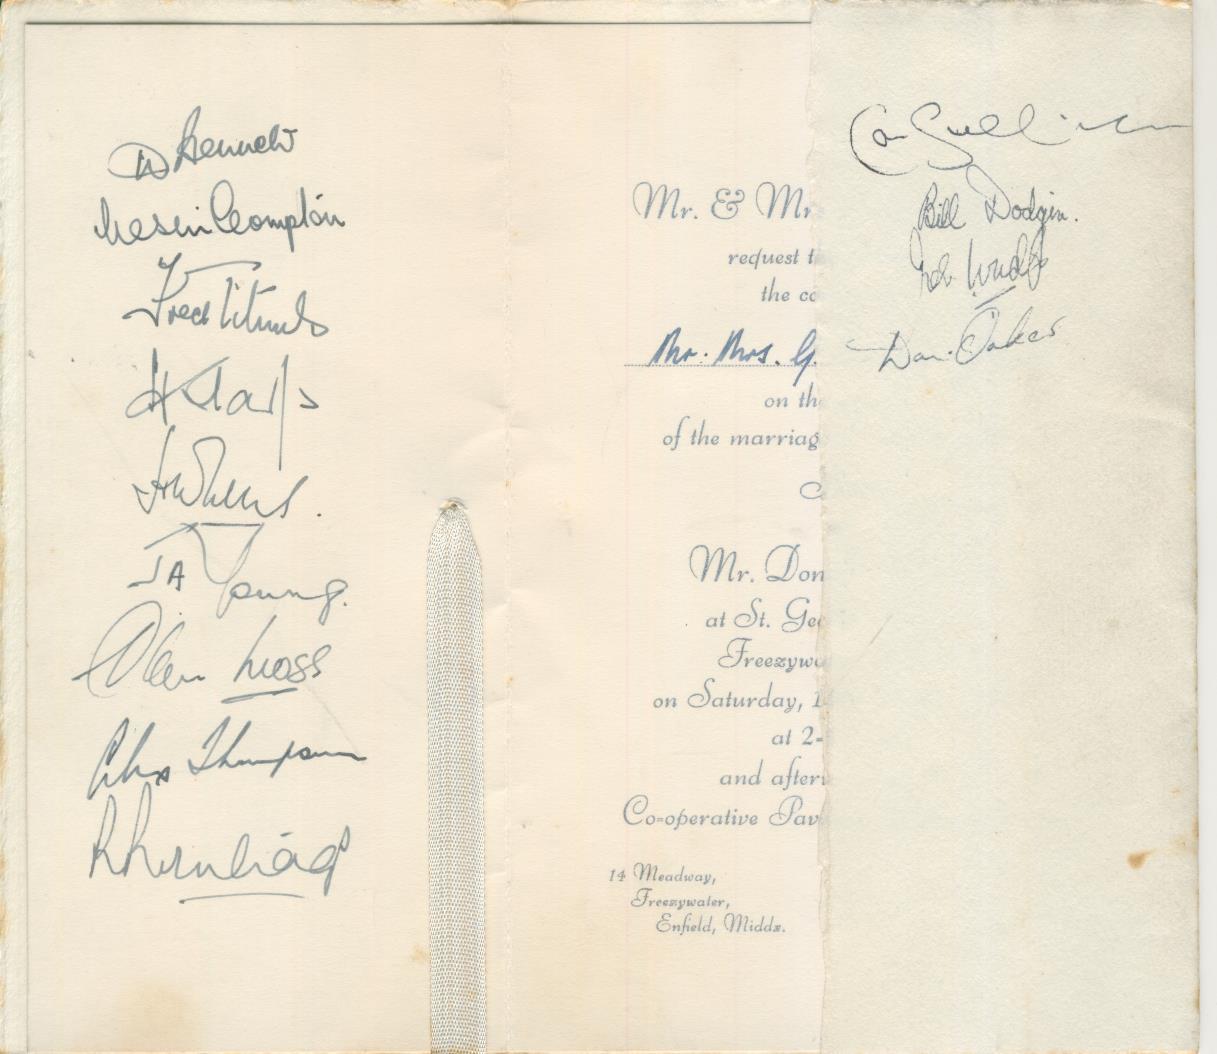 D Bennett
Leslie Compton
Fred Titmus
H Sharp
J A Young.
Alan Moss
Alex Thompson
Mr. & Mr
request t
the co
Mr. Mrs. G.
on th
of the marriag
Mr. Don
at St. Geo
Freezywa
on Saturday, 1
at 2-
and after
Co-operative Pav
14 Meadway,
Freezywater,
Enfield, Middx.
Con Sullivan
Bill Dodgin.
Don Oakes